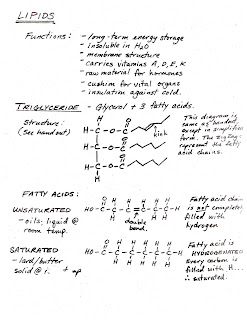 LIPIDS
Functions: - long-term energy storage
- insoluble in H₂O
- membrane structure
- carries vitamins A, D, E, K
- raw material for hormones
- cushion for vital organs
- insulation against cold.
TRIGLYCERIDE - Glycerol + 3 fatty acids.
Structure:
(see handout)
This diagram is
same as handout,
except in simplified
form. The zigzags
represent the fatty
acid chains.
kink
FATTY ACIDS:
UNSATURATED
- oils; liquid @
room temp.
double
bond.
Fatty acid chain
is not completely
filled with
hydrogen
SATURATED
- lard/butter
solid @
Fatty acid is
HYDROGENATED
Every carbon is
filled with H...
∴ saturated.